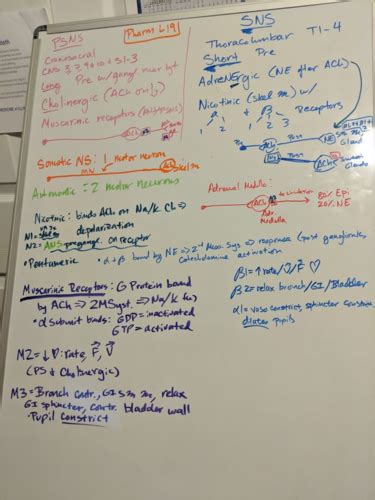 PSNS
Pharm L19
Craniosacral
CNS 3, 7, 9, 10 + S1-3
Long Pre w/gang near
Cholinergic (ACh only)
Muscarinic receptors
SNS
Thoracolumbar T1-4
Short Pre
AdreNErgic (NE after ACh)
Nicotinic (skel m) w/
α + β Receptors
1 2 1 2 3
Pre Post
NE
Gland
ACh Sweat Glands
Somatic NS: 1 motor neuron
MN ACh Skel m
Autonomic: 2 motor neurons
Adrenal Medulla:
ACh
Adr. Medulla
80% Epi
20% NE
Nicotinic: binds ACh on Na/K Ch ⇒
depolarization
N2: ANS
receptor
• Pentameric
• α + β bound by NE ⇒ 2nd Mess. Sys ⇒ response (post ganglionic,
Catecholamine activation
Muscarinic Receptors: G Protein bound
by ACh ⇒ 2M Syst. ⇒ Na/K
• α Subunit binds: GDP = inactivated
GTP = activated
β1 = ↑ rate
β2 = relax bronch/GI/Bladder
α1 = vaso constrict, sphincter constrict,
dilate pupils
M2 = ↓ rate, F, V
(PS & Cholinergic)
M3 = Bronch contr., GI sm m, relax
GI sphincter, contr. bladder wall
• Pupil constrict